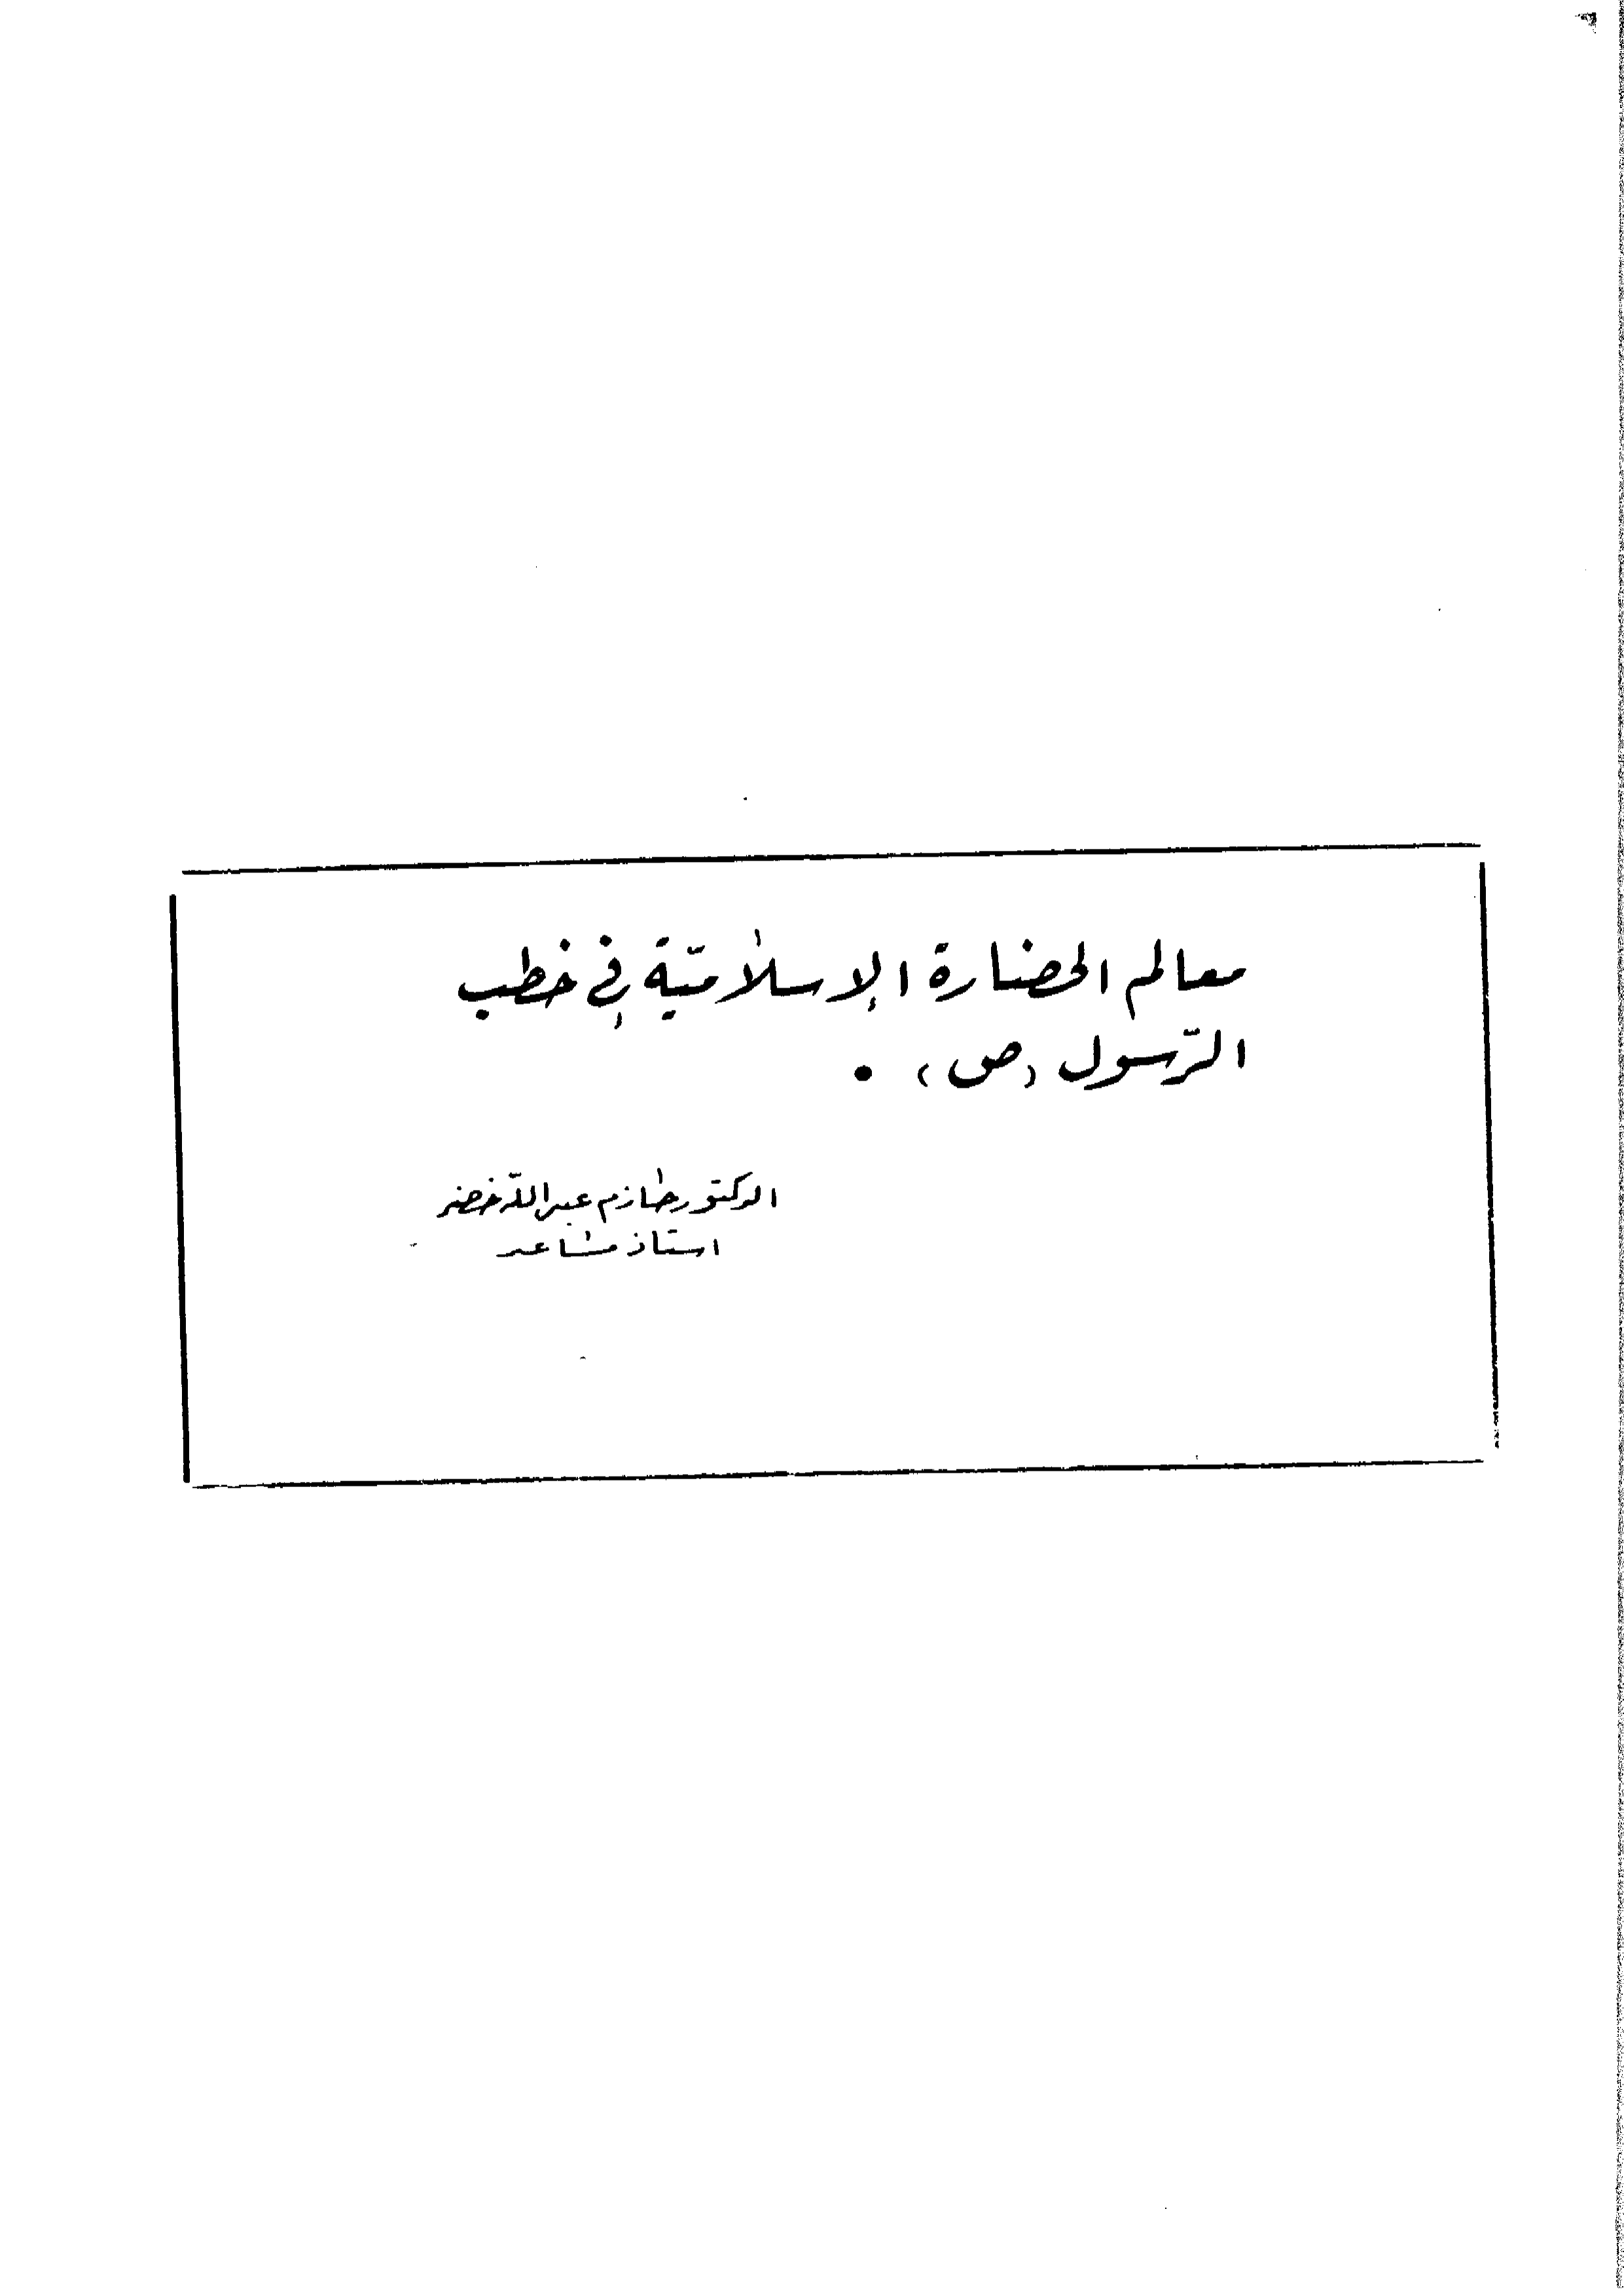 معالم الحضارة الإسلاميّة في خطب
الرّسول (ص) .
الدكتور حازم عبدالله خضر
استاذ مساعد